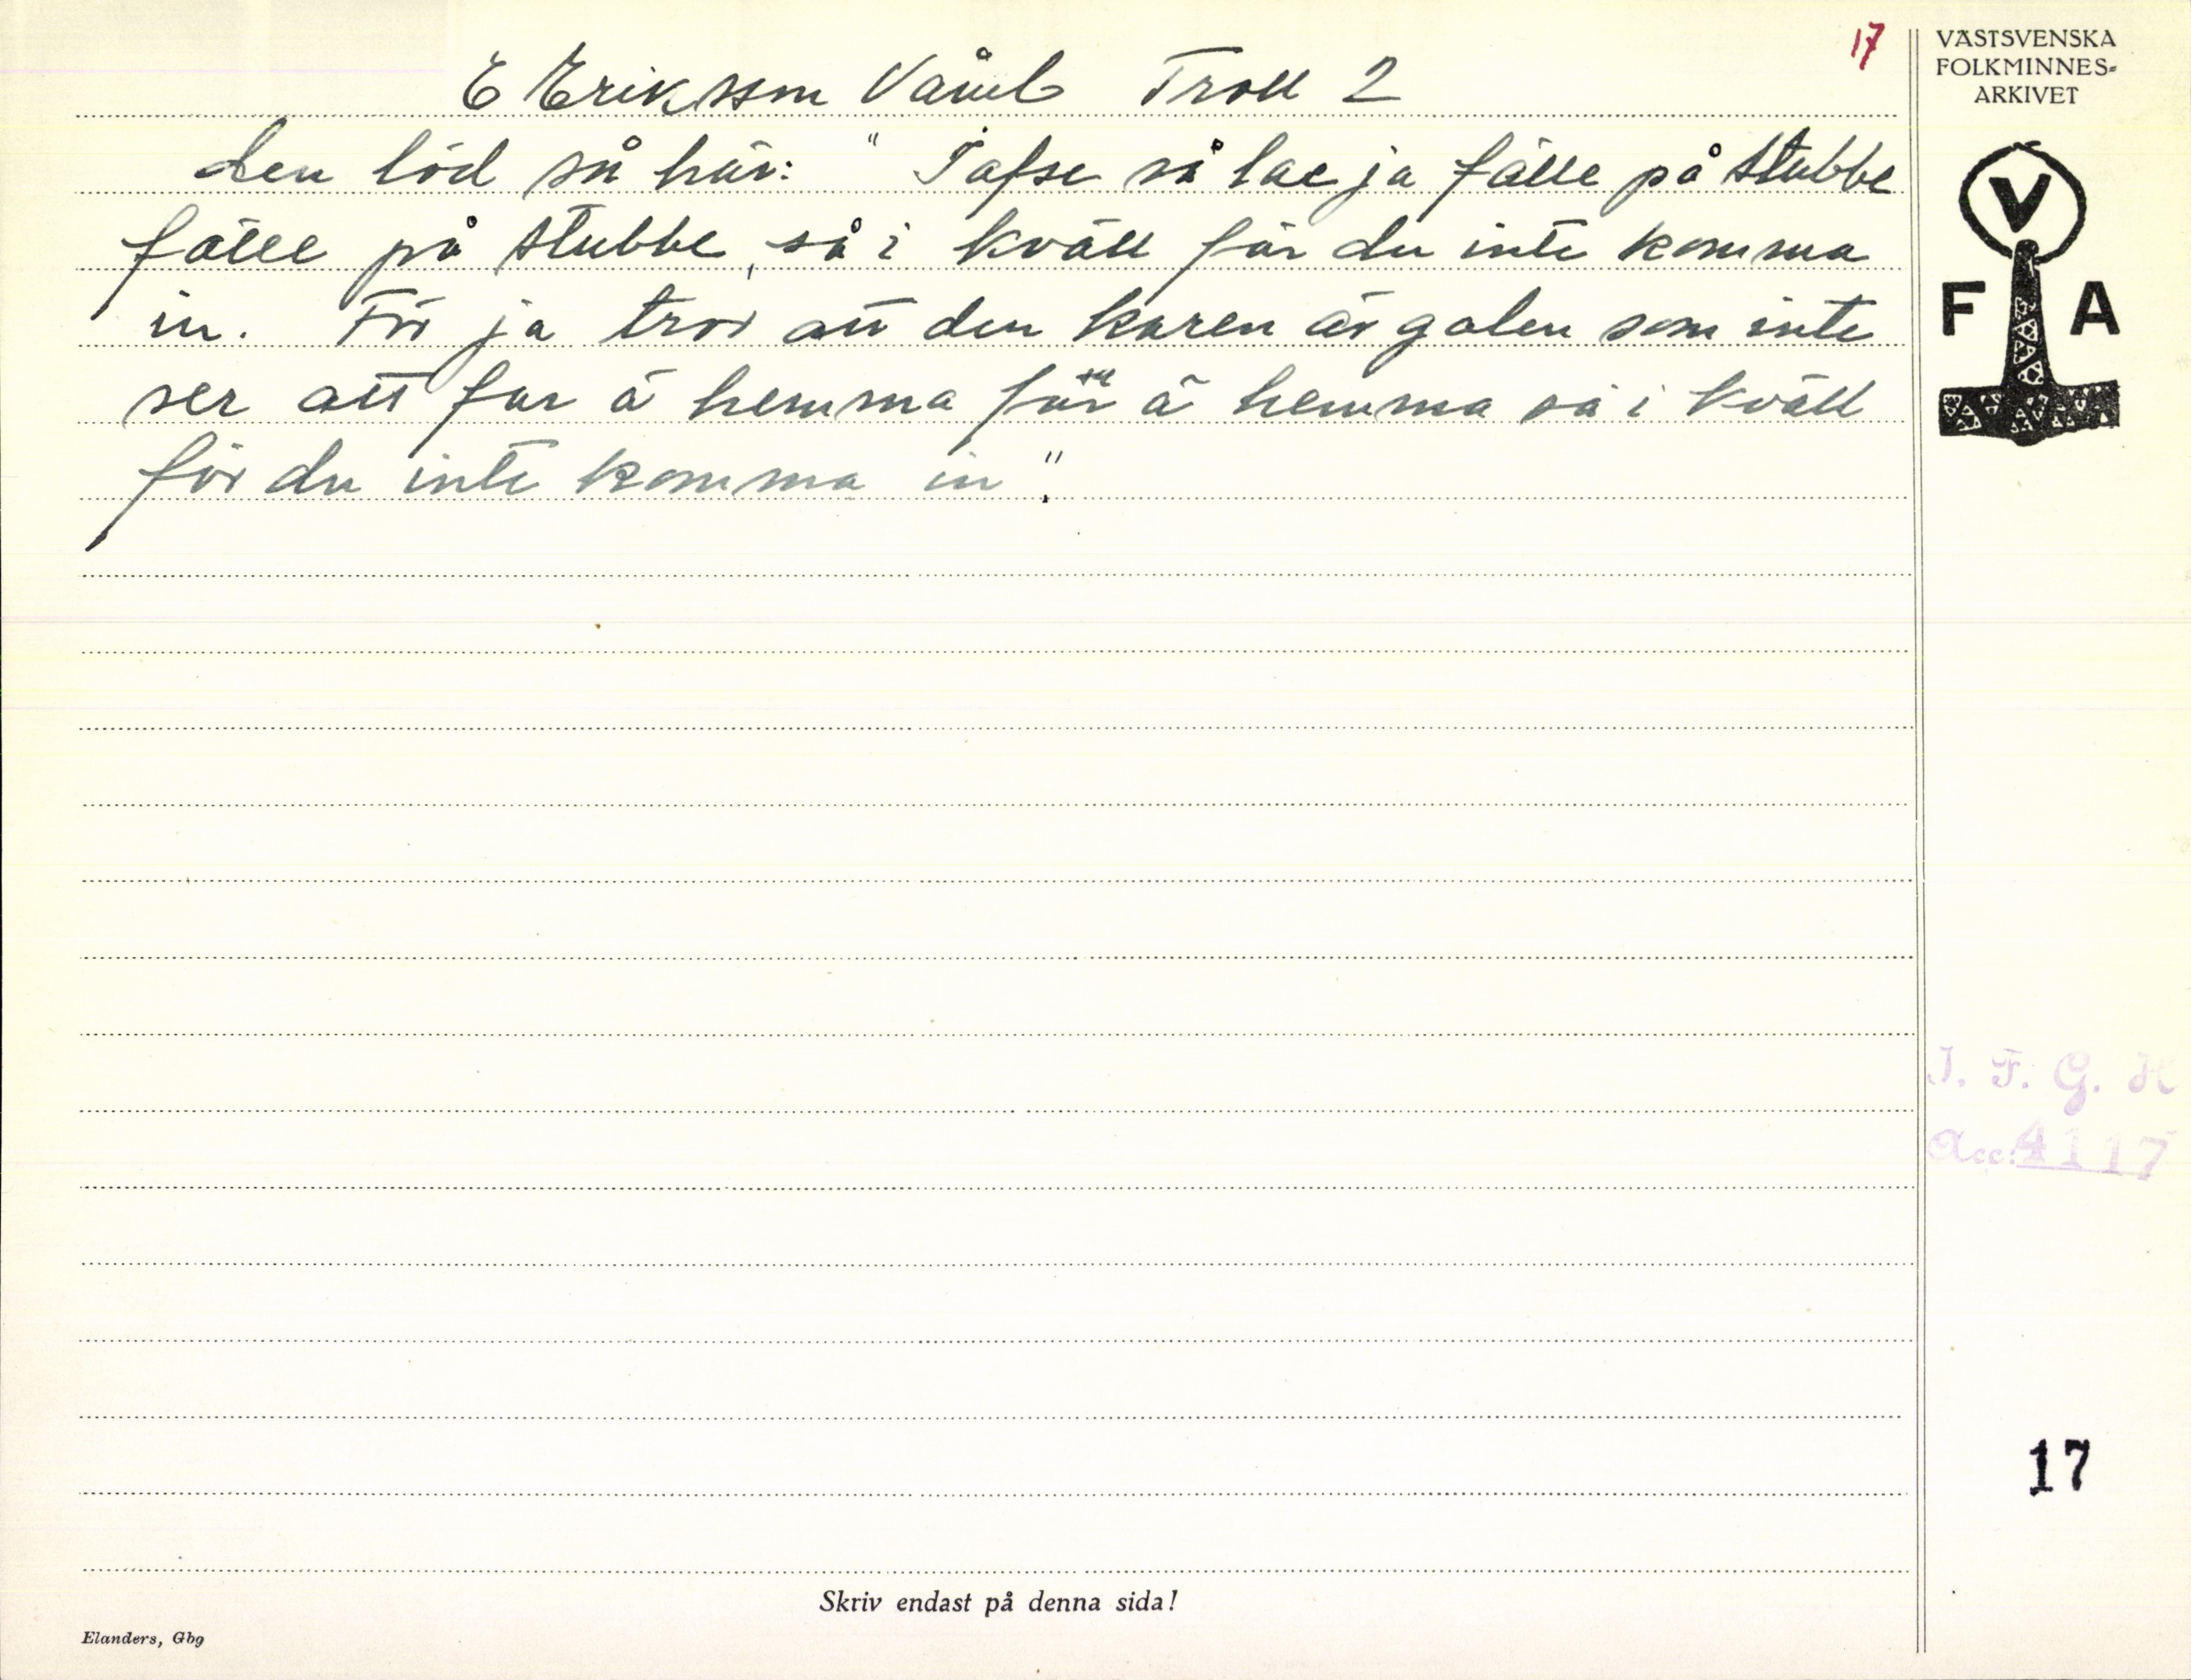 17
E Eriksson Våmb Troll 2
den löd så här: " så lae ja fälle på stubbe
fälle på stubbe, så i kväll får du inte komma
in. För ja tror att den karen är galen som inte
ser att far ä hemma far ä hemma så i kväll
får du inte komma in".
VÄSTSVENSKA
FOLKMINNES-
ARKIVET
V
F A
I. F. G. H
Acc: 4117
17
Skriv endast på denna sida!
Elanders, Gbg